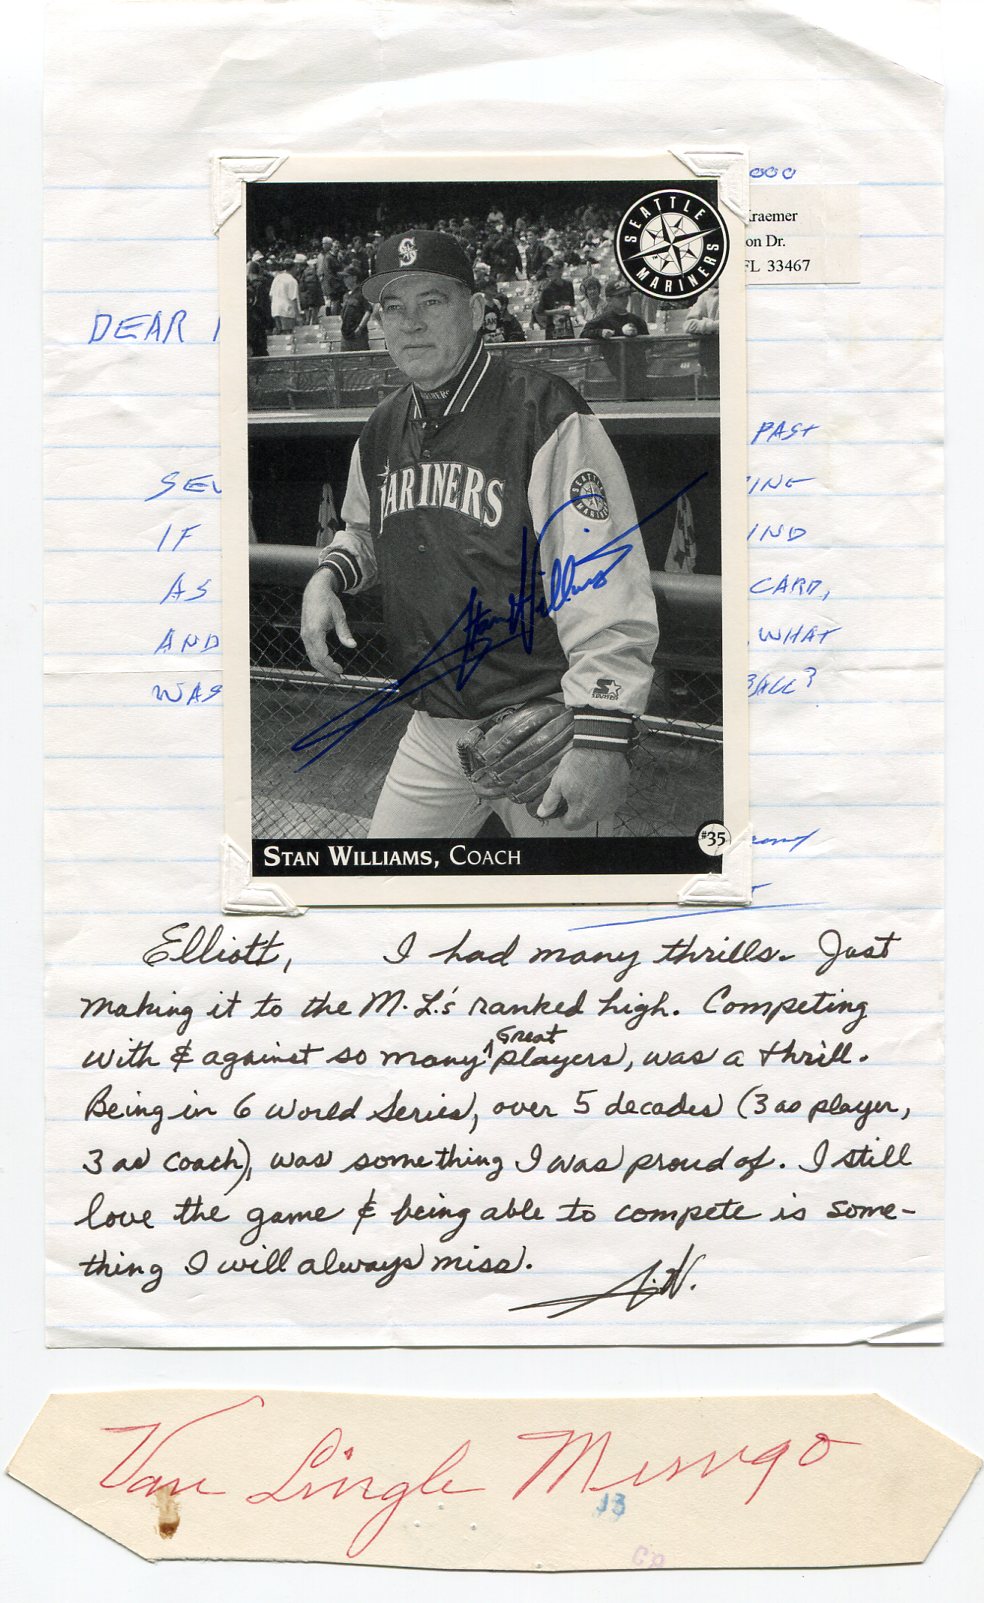 000
Kraemer
on Dr.
FL 33467
DEAR
PAST
SEV
ING
IF
IND
AS
CARD,
AND
WHAT
WAS
BALL?
SEATTLE MARINERS
S
MARINERS
MARINERS
SEATTLE MARINERS
Stan Williams
STARTER
#35
STAN WILLIAMS, COACH
Elliott, I had many thrills. Just
making it to the M.L.'s ranked high. Competing
with & against so many great players, was a thrill.
Being in 6 World Series, over 5 decades (3 as player,
3 as coach), was something I was proud of. I still
love the game & being able to compete is some-
thing I will always miss.
S.W.
Van Lingle Mungo
13